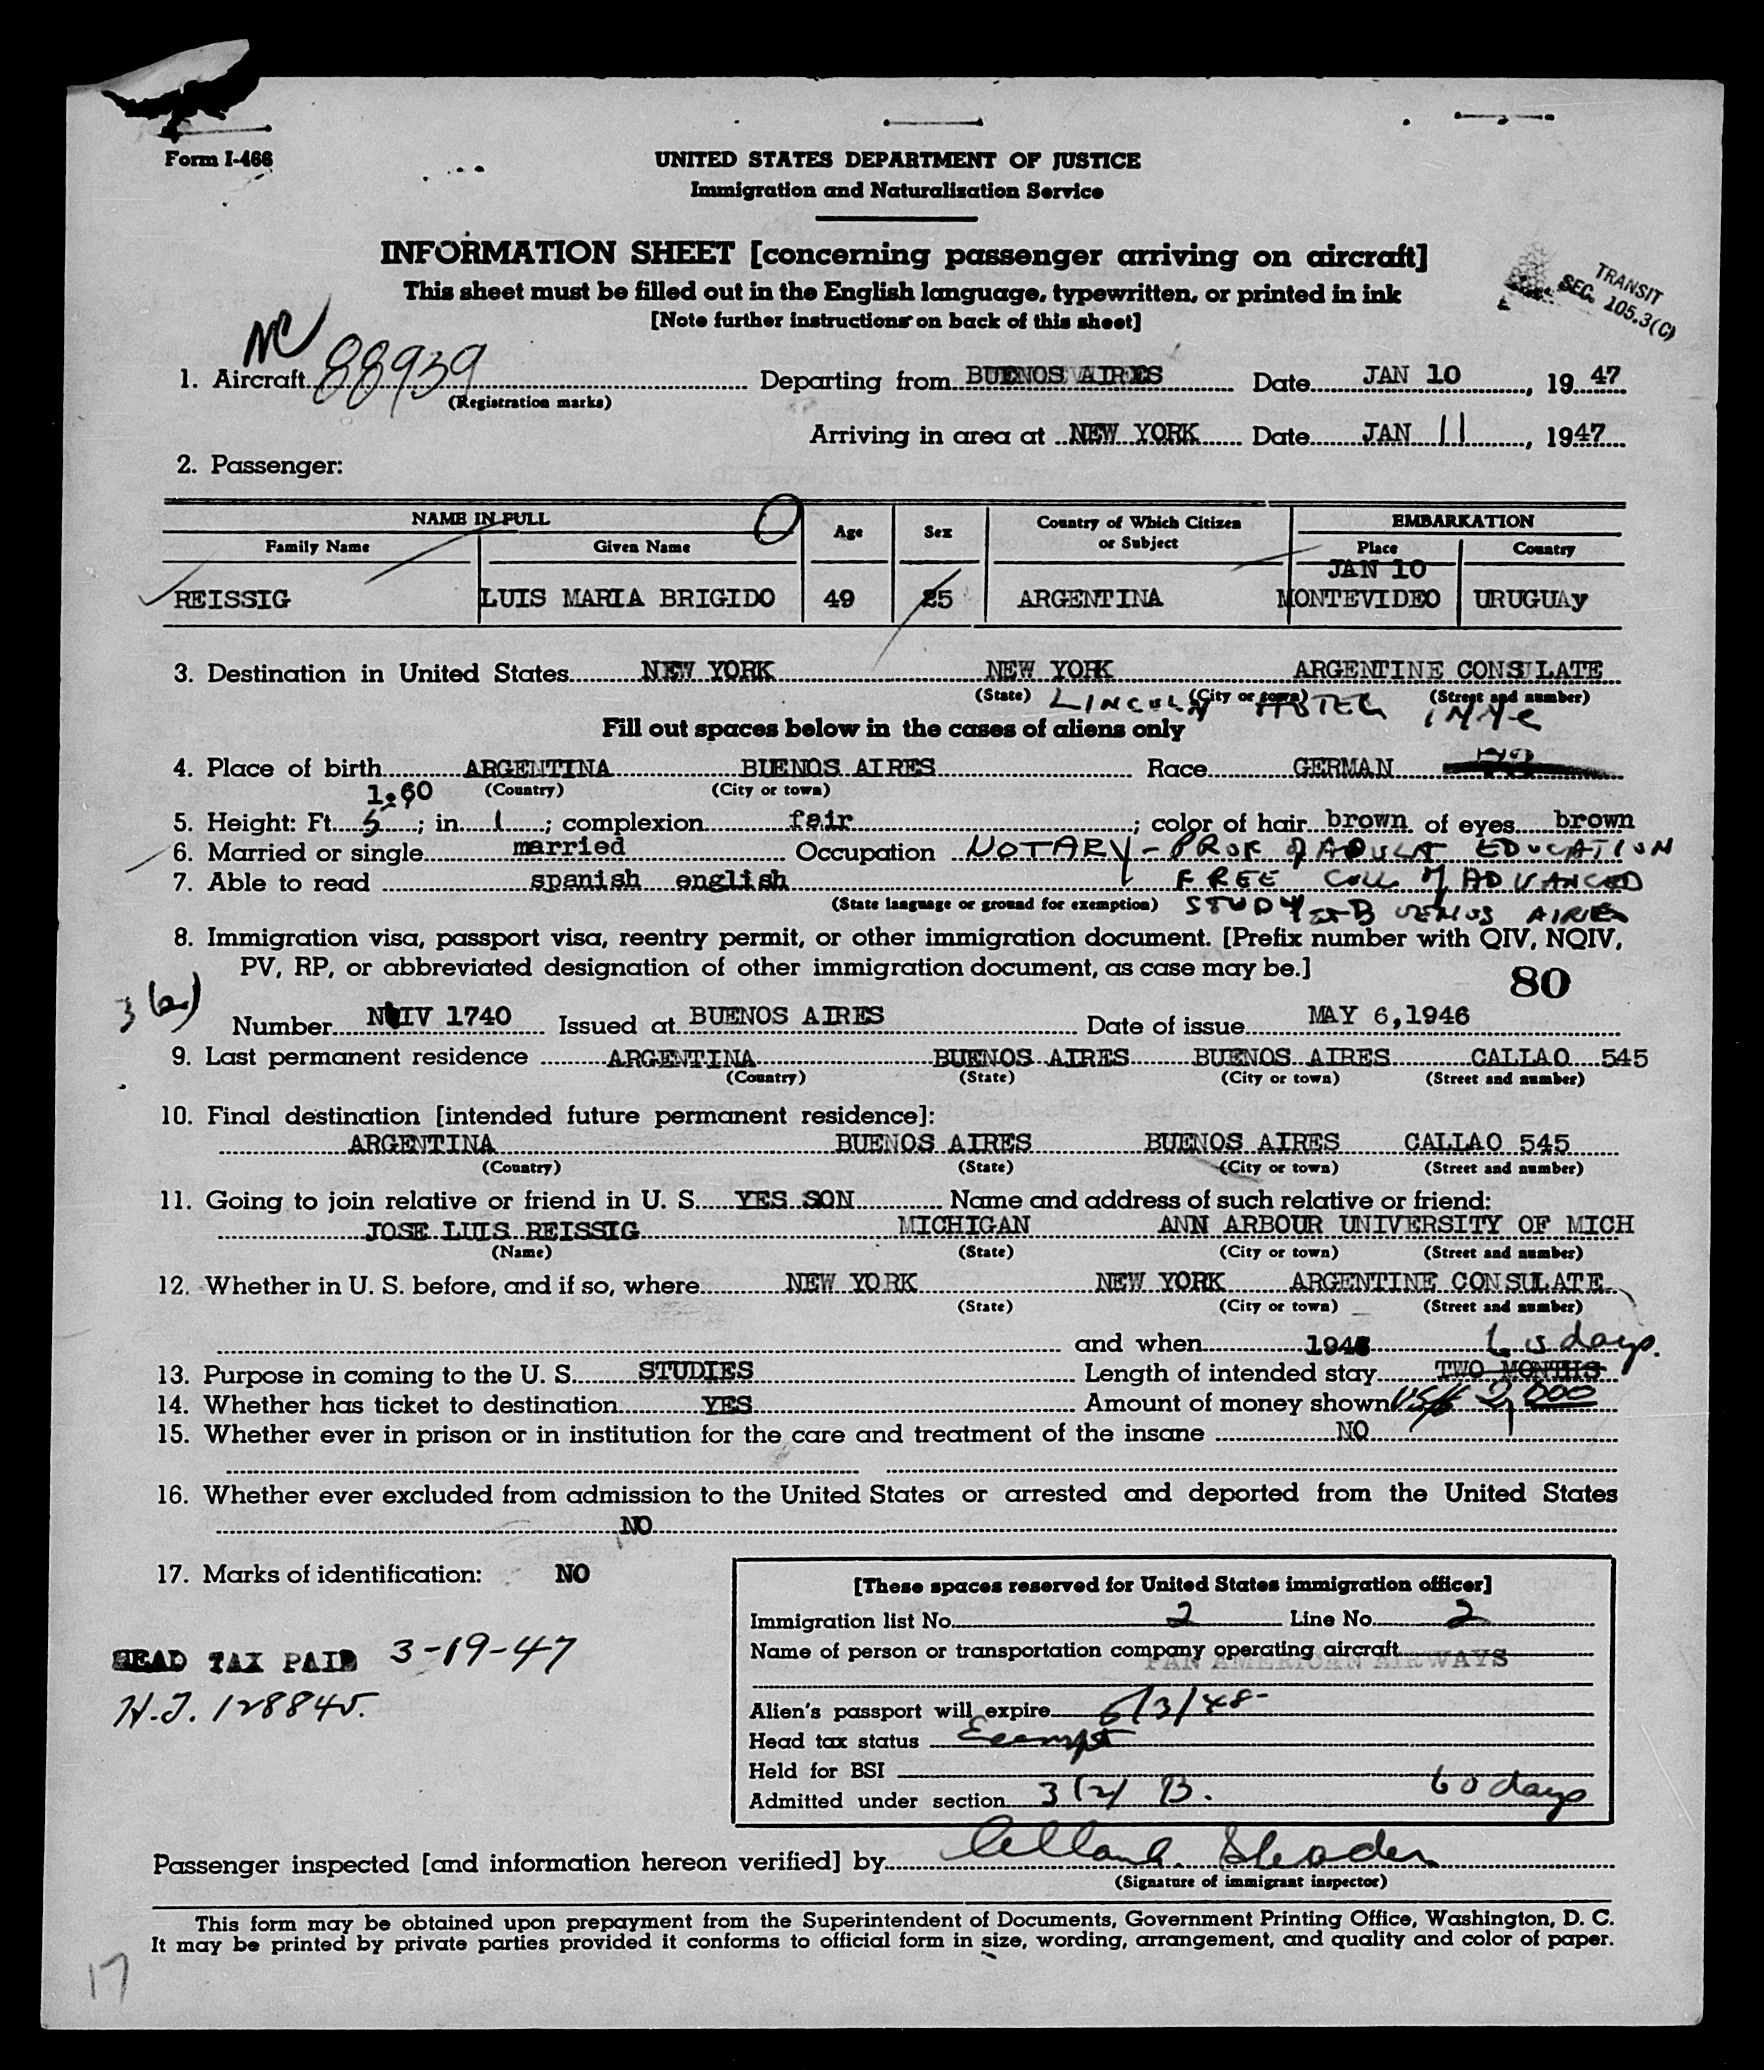 Form I-466
UNITED STATES DEPARTMENT OF JUSTICE
Immigration and Naturalization Service
INFORMATION SHEET [concerning passenger arriving on aircraft]
This sheet must be filled out in the English language, typewritten, or printed in ink
[Note further instructions on back of this sheet]
TRANSIT
SEC. 105.3(C)
NC
1. Aircraft 88939 Departing from BUENOS AIRES Date JAN 10, 1947
(Registration marks)
Arriving in area at NEW YORK Date JAN 11, 1947
2. Passenger:
NAME IN FULL Age Sex Country of Which Citizen or Subject EMBARKATION
Family Name Given Name Place Country
JAN 10
REISSIG LUIS MARIA BRIGIDO 49 ARGENTINA MONTEVIDEO URUGUAY
3. Destination in United States NEW YORK NEW YORK ARGENTINE CONSULATE
(State) (City or town) (Street and number)
LINCOLN HOTEL IN NYC
Fill out spaces below in the cases of aliens only
4. Place of birth ARGENTINA BUENOS AIRES Race GERMAN
1.60 (Country) (City or town)
5. Height: Ft. 5; in. 1; complexion fair; color of hair brown of eyes brown
6. Married or single married Occupation NOTARY - PROF of ADULT EDUCATION
7. Able to read spanish english FREE COLL of ADVANCED
(State language or ground for exemption) STUDY BUENOS AIRES
8. Immigration visa, passport visa, reentry permit, or other immigration document. [Prefix number with QIV, NQIV,
PV, RP, or abbreviated designation of other immigration document, as case may be.]
80
3(2)
Number NIV 1740 Issued at BUENOS AIRES Date of issue MAY 6,1946
9. Last permanent residence ARGENTINA BUENOS AIRES BUENOS AIRES CALLAO 545
(Country) (State) (City or town) (Street and number)
10. Final destination [intended future permanent residence]:
ARGENTINA BUENOS AIRES BUENOS AIRES CALLAO 545
(Country) (State) (City or town) (Street and number)
11. Going to join relative or friend in U. S. YES SON Name and address of such relative or friend:
JOSE LUIS REISSIG MICHIGAN ANN ARBOUR UNIVERSITY OF MICH
(Name) (State) (City or town) (Street and number)
12. Whether in U. S. before, and if so, where NEW YORK NEW YORK ARGENTINE CONSULATE
(State) (City or town) (Street and number)
and when 60 days.
13. Purpose in coming to the U. S. STUDIES Length of intended stay TWO MONTHS
14. Whether has ticket to destination YES Amount of money shown US$ 2,000
15. Whether ever in prison or in institution for the care and treatment of the insane NO
16. Whether ever excluded from admission to the United States or arrested and deported from the United States
NO
17. Marks of identification: NO
[These spaces reserved for United States immigration officer]
Immigration list No. 2 Line No. 2
Name of person or transportation company operating aircraft
PAN AMERICAN AIRWAYS
Alien's passport will expire 6/3/48
Head tax status Exempt
Held for BSI
Admitted under section 3(2) B. 60 days
HEAD TAX PAID 3-19-47
H.T. 128845.
Passenger inspected [and information hereon verified] by
(Signature of immigrant inspector)
This form may be obtained upon prepayment from the Superintendent of Documents, Government Printing Office, Washington, D. C.
It may be printed by private parties provided it conforms to official form in size, wording, arrangement, and quality and color of paper.
17